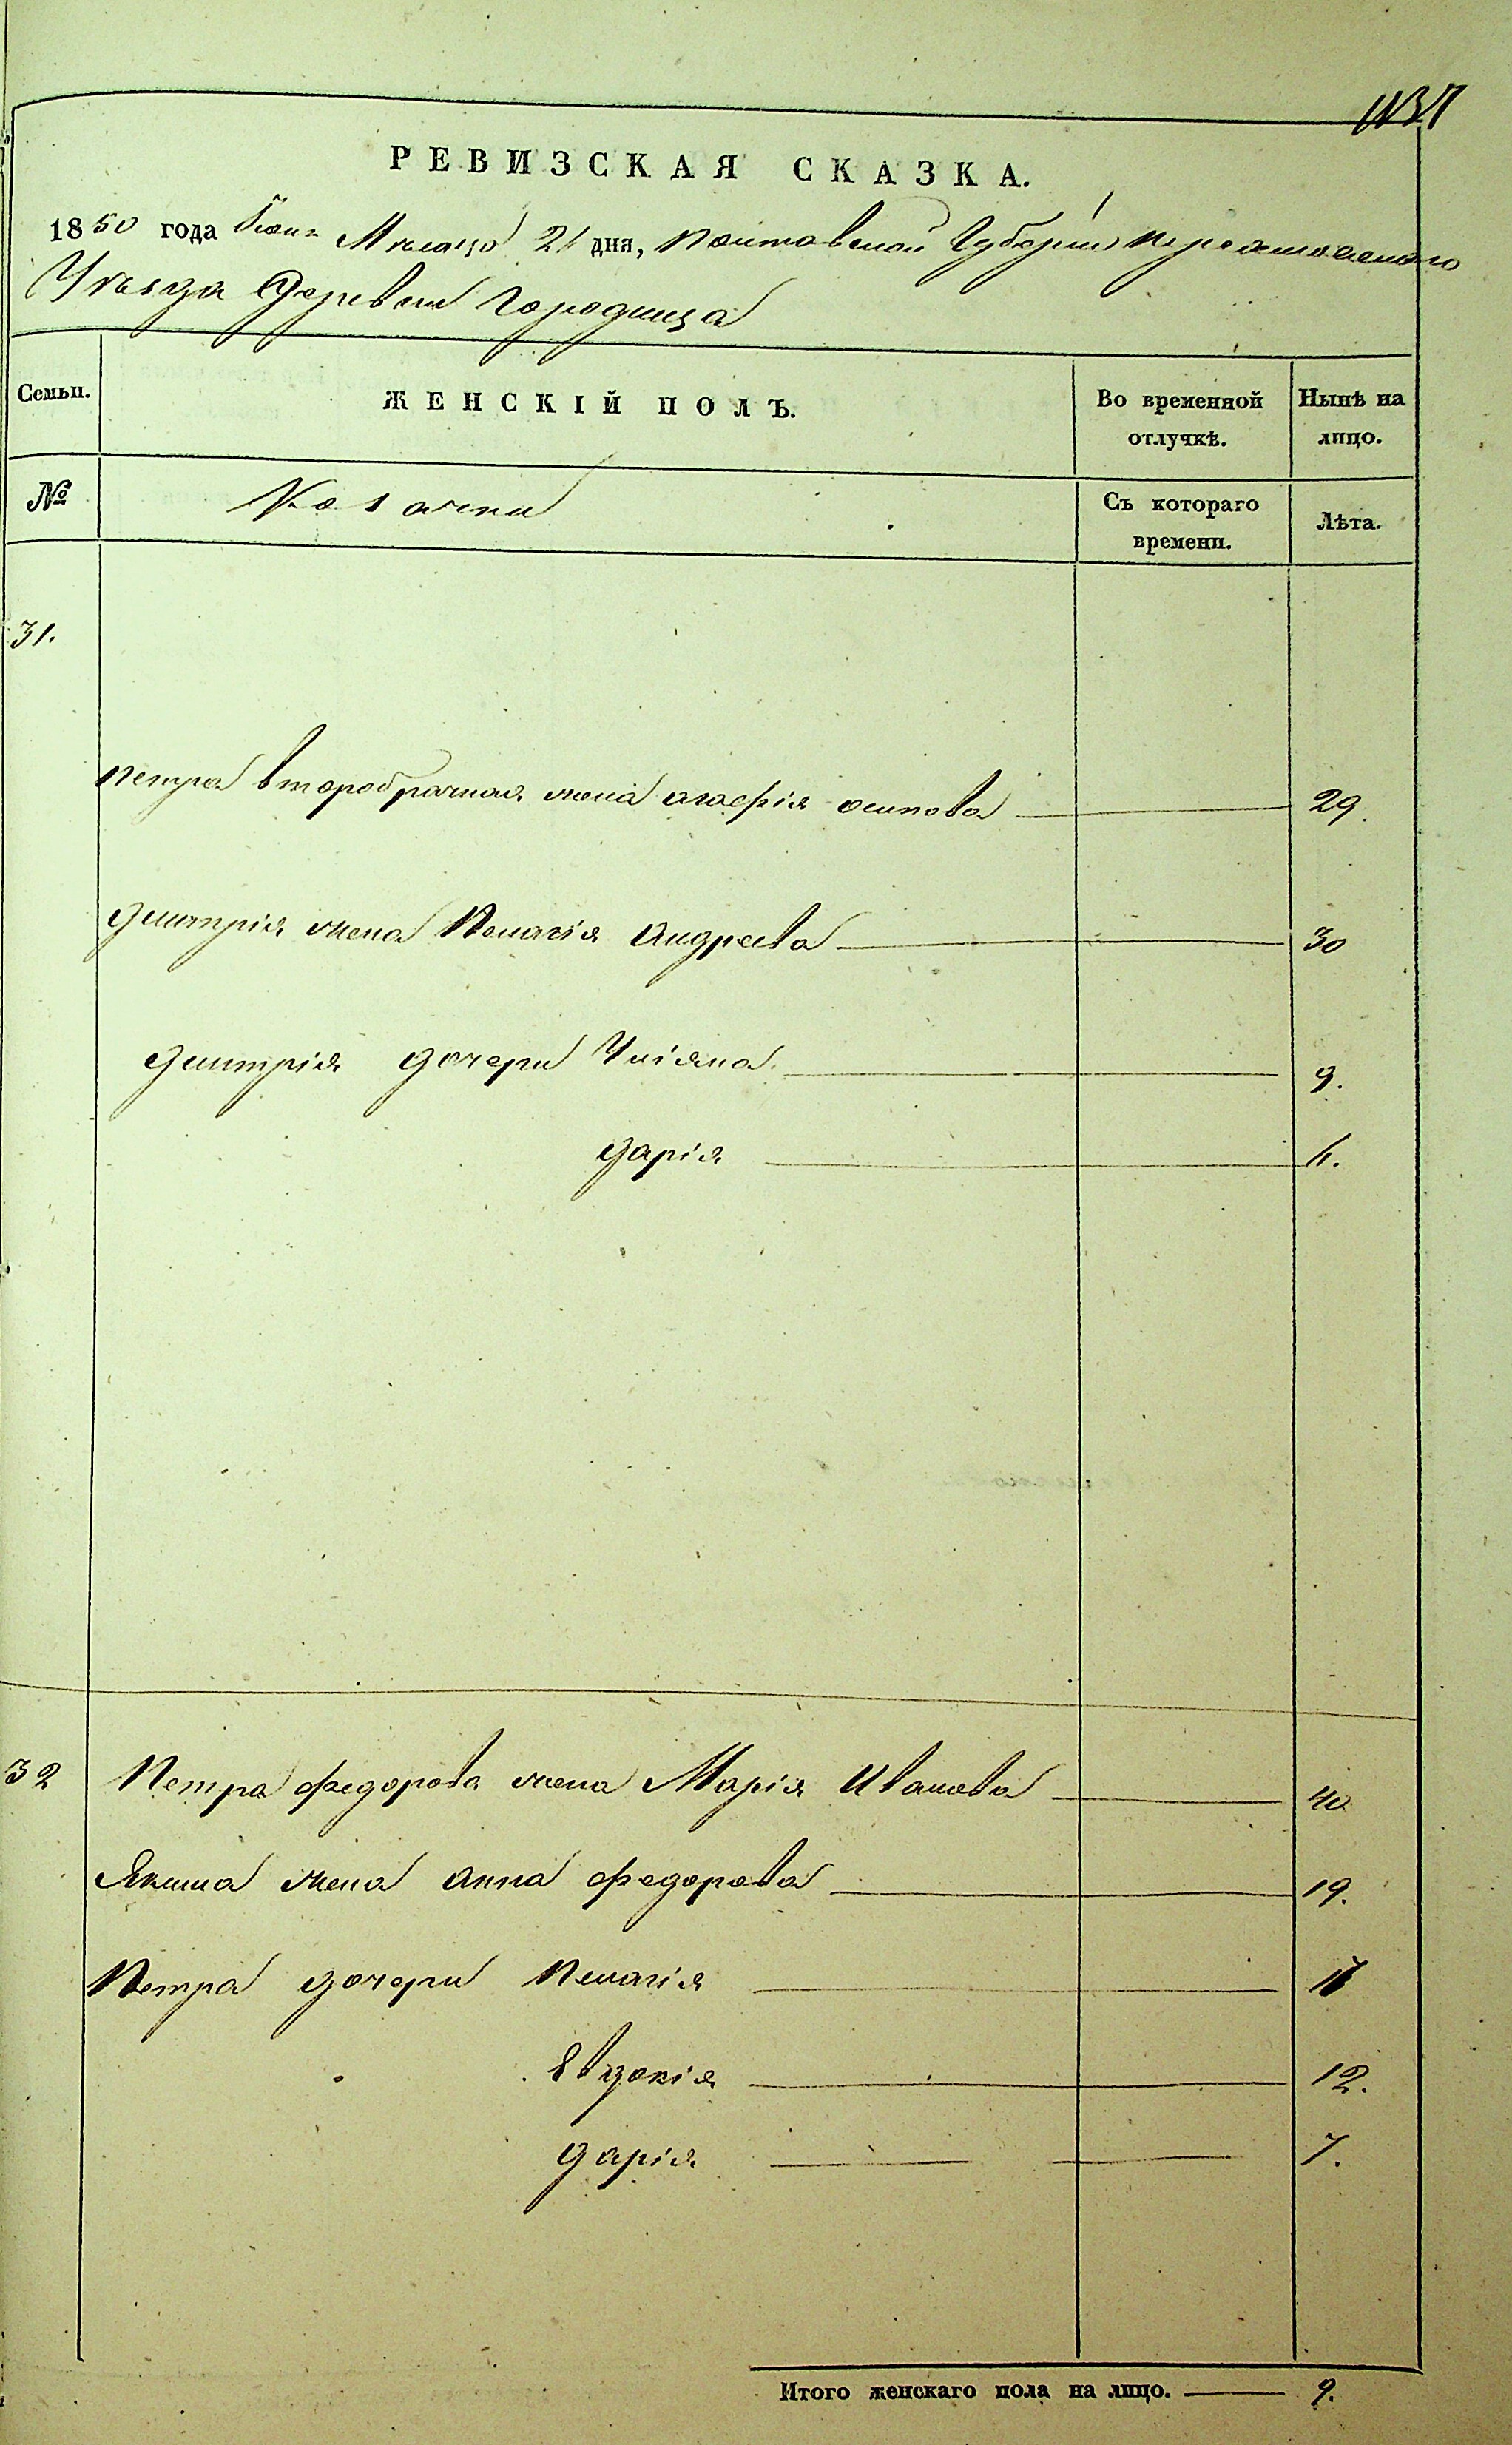 1137
РЕВИЗСКАЯ СКАЗКА.
1850 года Іюня Мѣсяца 21 дня, Полтавской Губерніи
Уѣзда Деревни Городища
Семьи.
ЖЕНСКІЙ ПОЛЪ.
Во временной отлучкѣ.
Ныпѣ на лицо.
№
Козачки
Съ котораго времени.
Лѣта.
31.
Петра второбрачная жена агафія осипова 29.
Дмитрія жена Пелагія Андреева 30
Дмитрія дочери Уліяна 9.
Дарія 6.
32 Петра Федорова жена Марія Иванова 40
Якима жена Анна Федорова 19.
Петра дочери Пелагія
Евдокія 12.
Дарія 7.
Итого женскаго пола на лицо. 9.